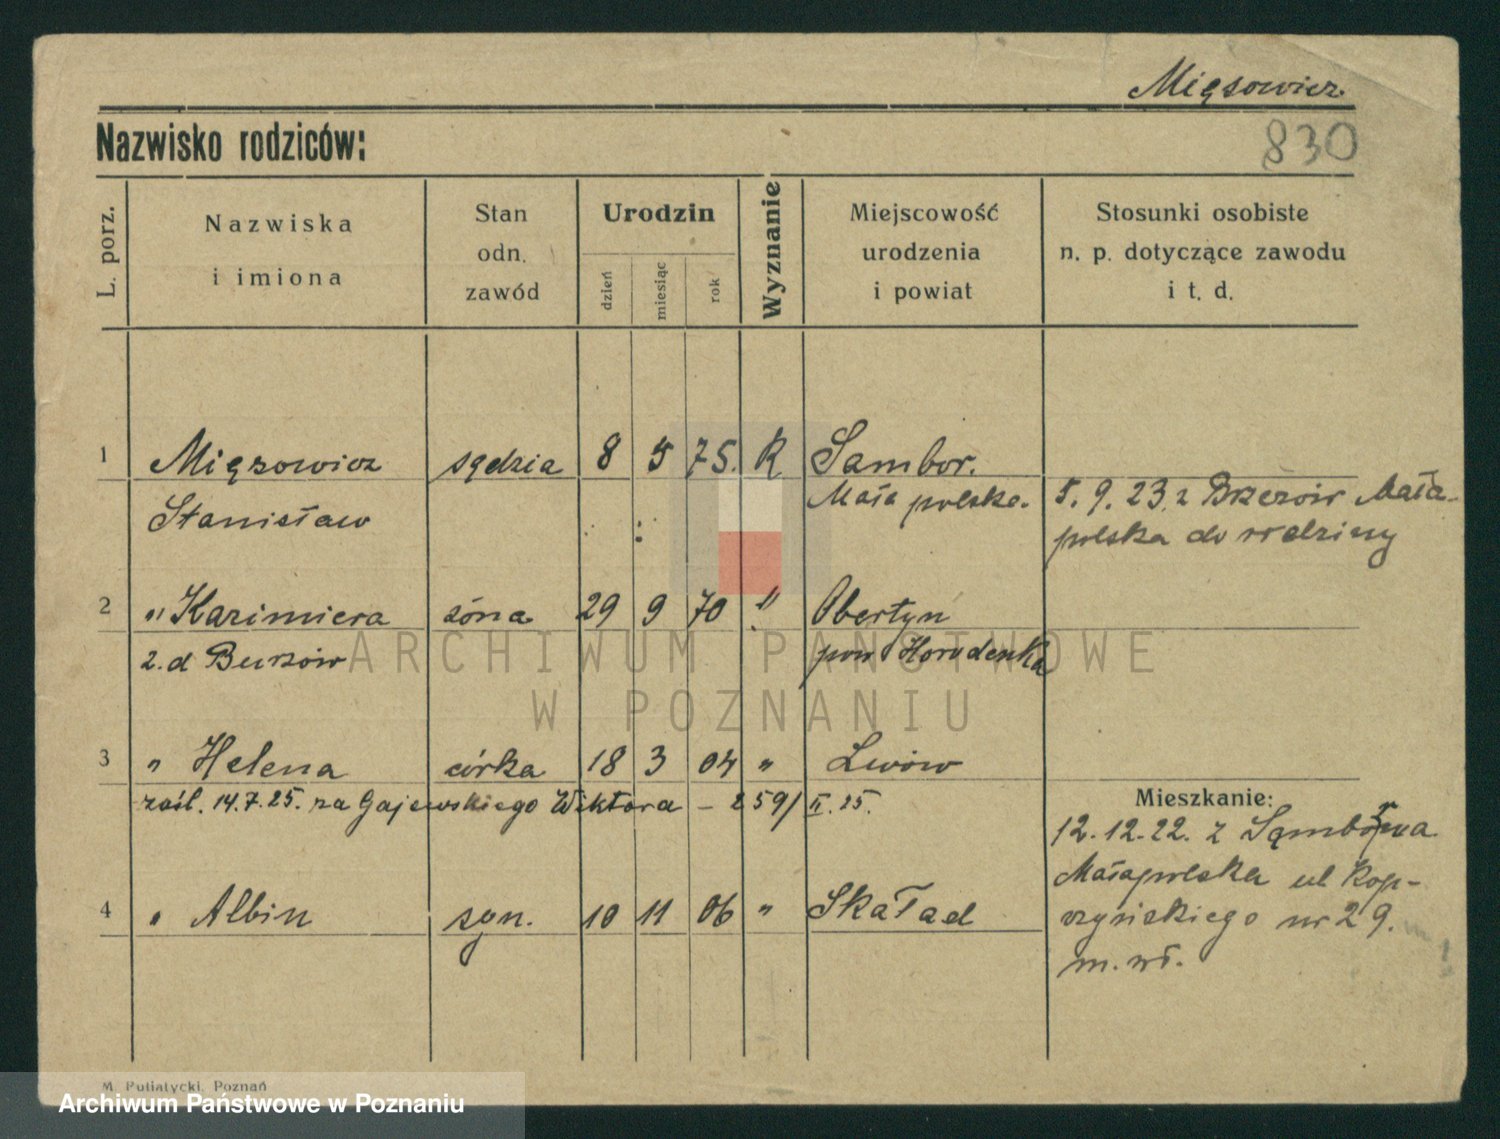 Mięsowicz
830
Nazwisko rodziców:
L. porz.
Nazwiska
i imiona
Stan
odn.
zawód
Urodzin
dzień
miesiąc
rok
Wyznanie
Miejscowość
urodzenia
i powiat
Stosunki osobiste
n. p. dotyczące zawodu
i t. d.
1 Mięsowicz sędzia 8 5 75. R Sambor.
Stanisław Małapolska. 5. 9. 23. z Brzezów Mała-
polska do rodziny
2 " Kazimiera żona 29 9 70 " Obertyn
z.d Burzów pow Horodenka
3 " Helena córka 18 3 04 " Lwów
zaśl. 14.7.25. za Gajewskiego Wiktora - 259/ II. 25.
Mieszkanie:
12.12.22. z Sambora
Małapolska ul Kop-
czyńskiego nr 29.
m. wł.
4 " Albin syn. 10 11 06 " Skaład
M. Putiatycki, Poznań
ARCHIWUM PAŃSTWOWE
W POZNANIU
Archiwum Państwowe w Poznaniu